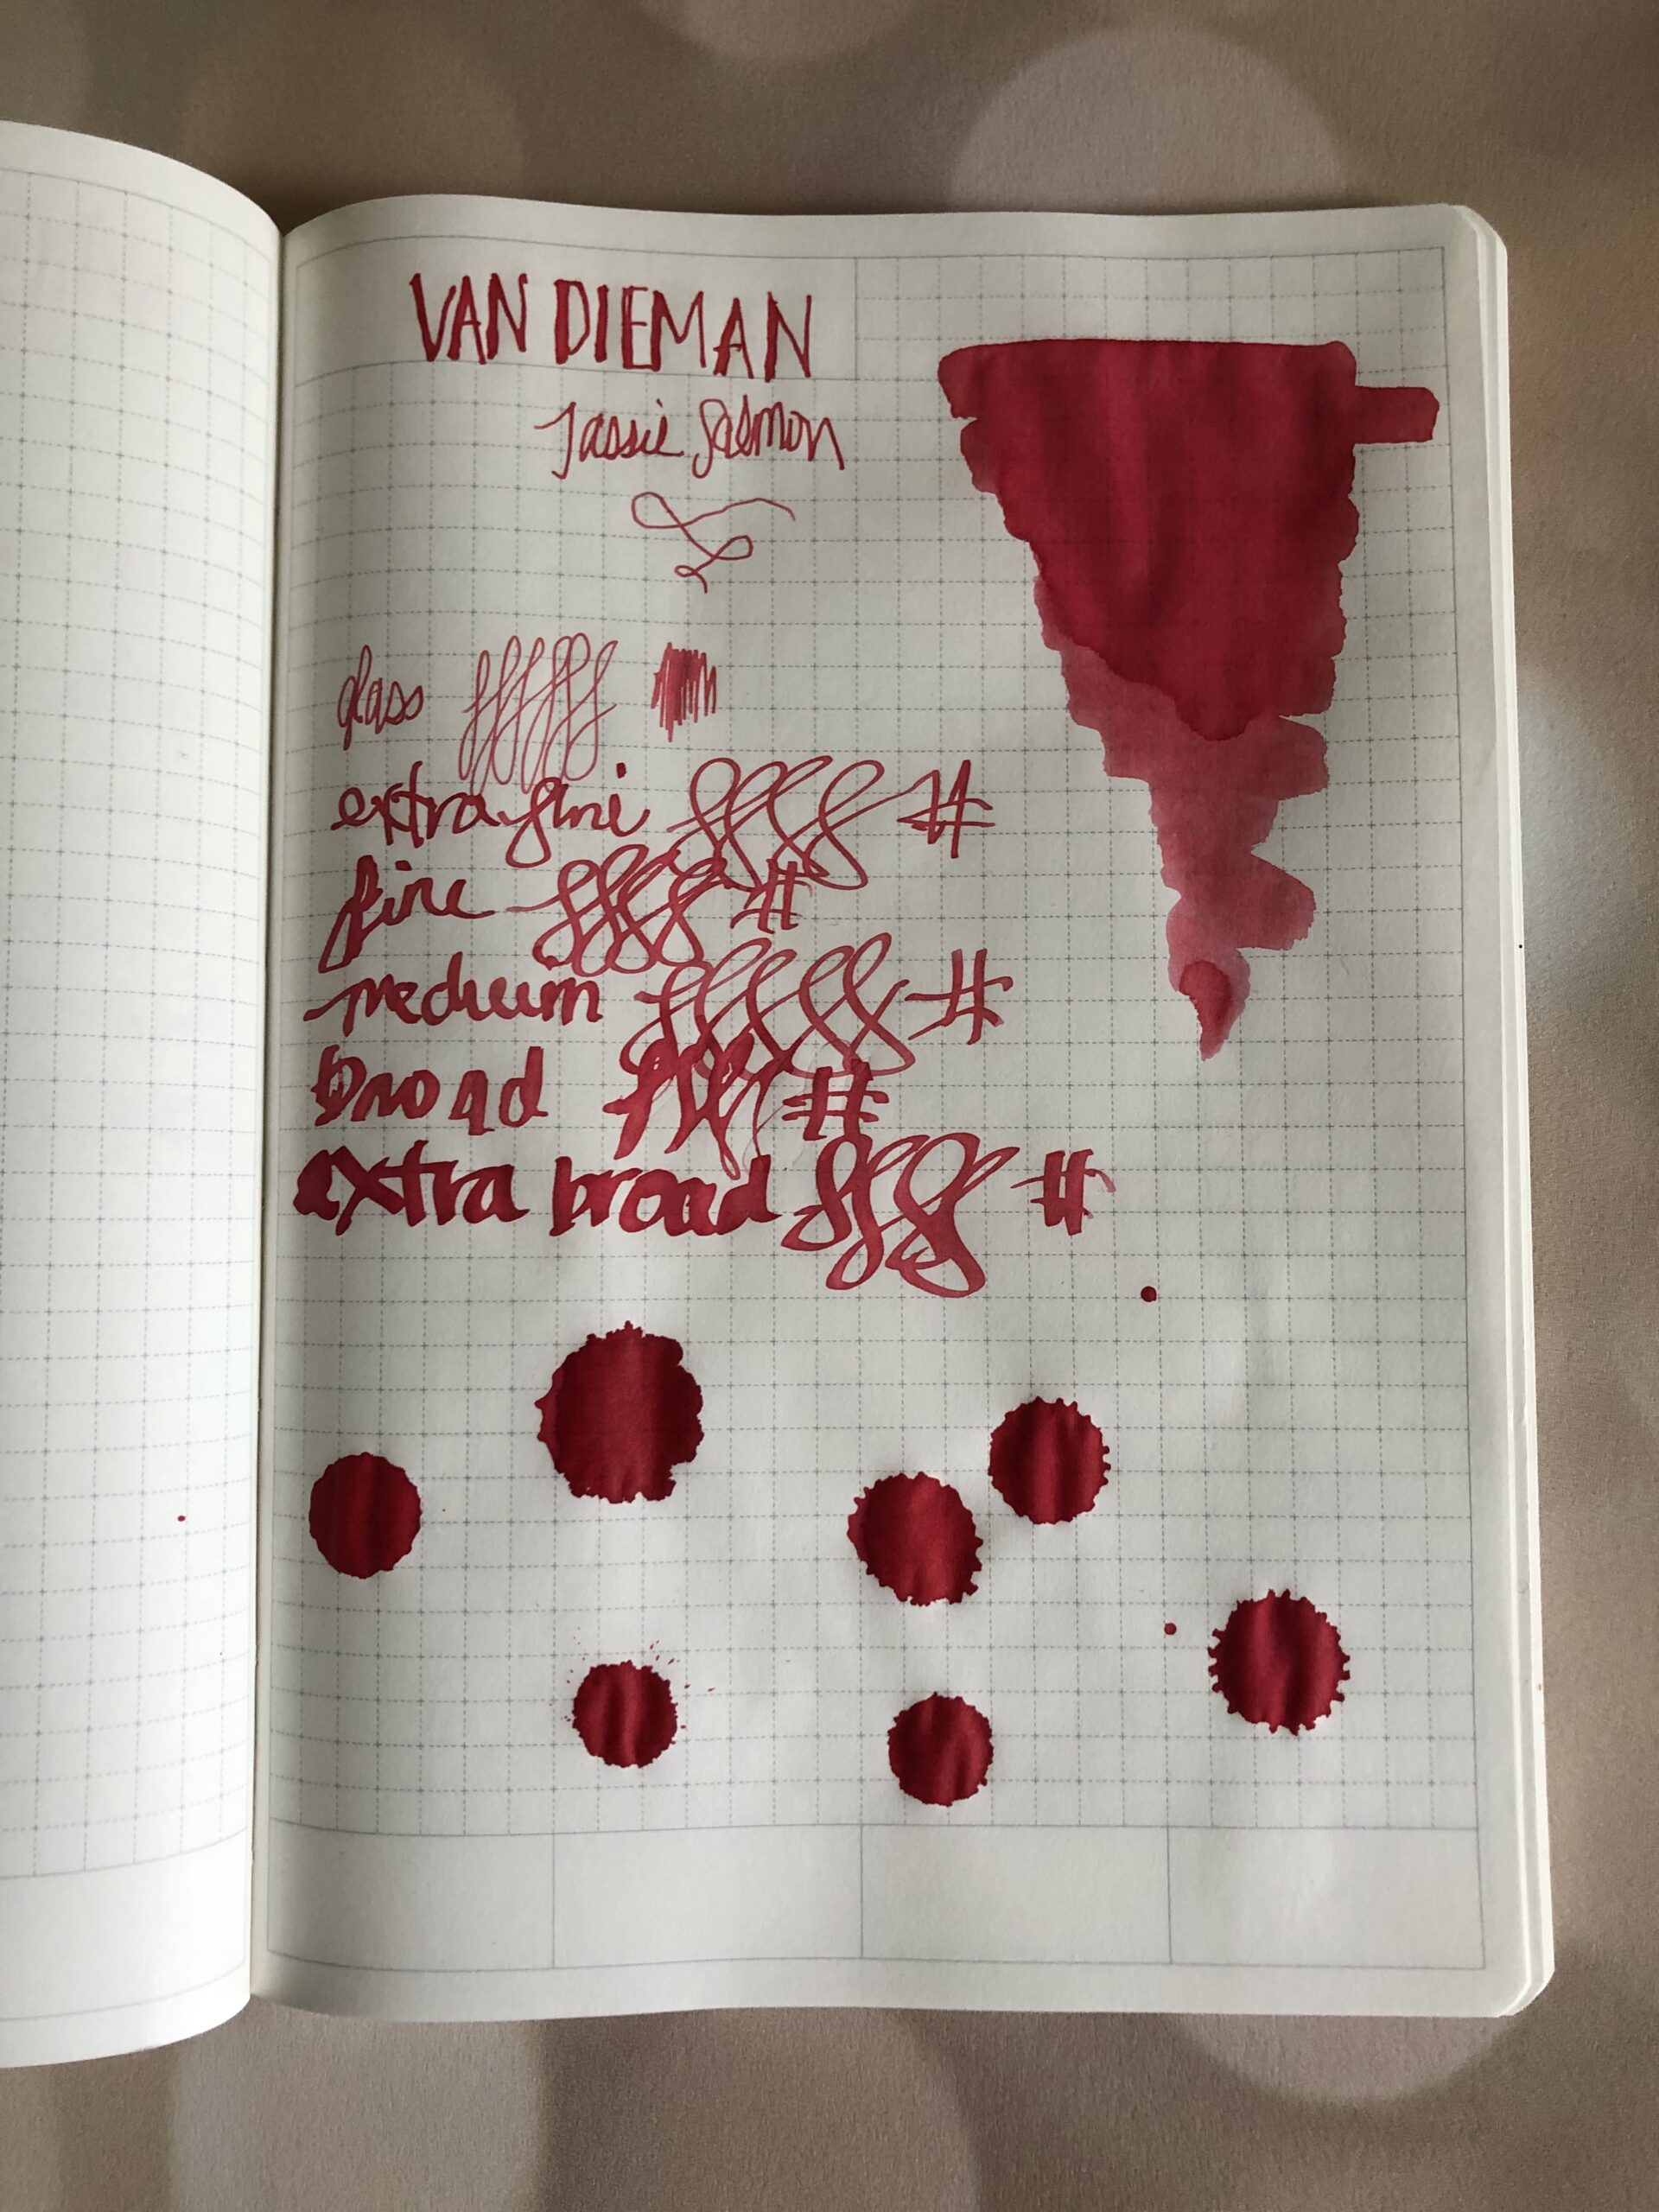 VAN DIEMAN
Tassie Salmon
glass
extra fine #
fine #
medium #
Broad #
extra broad #